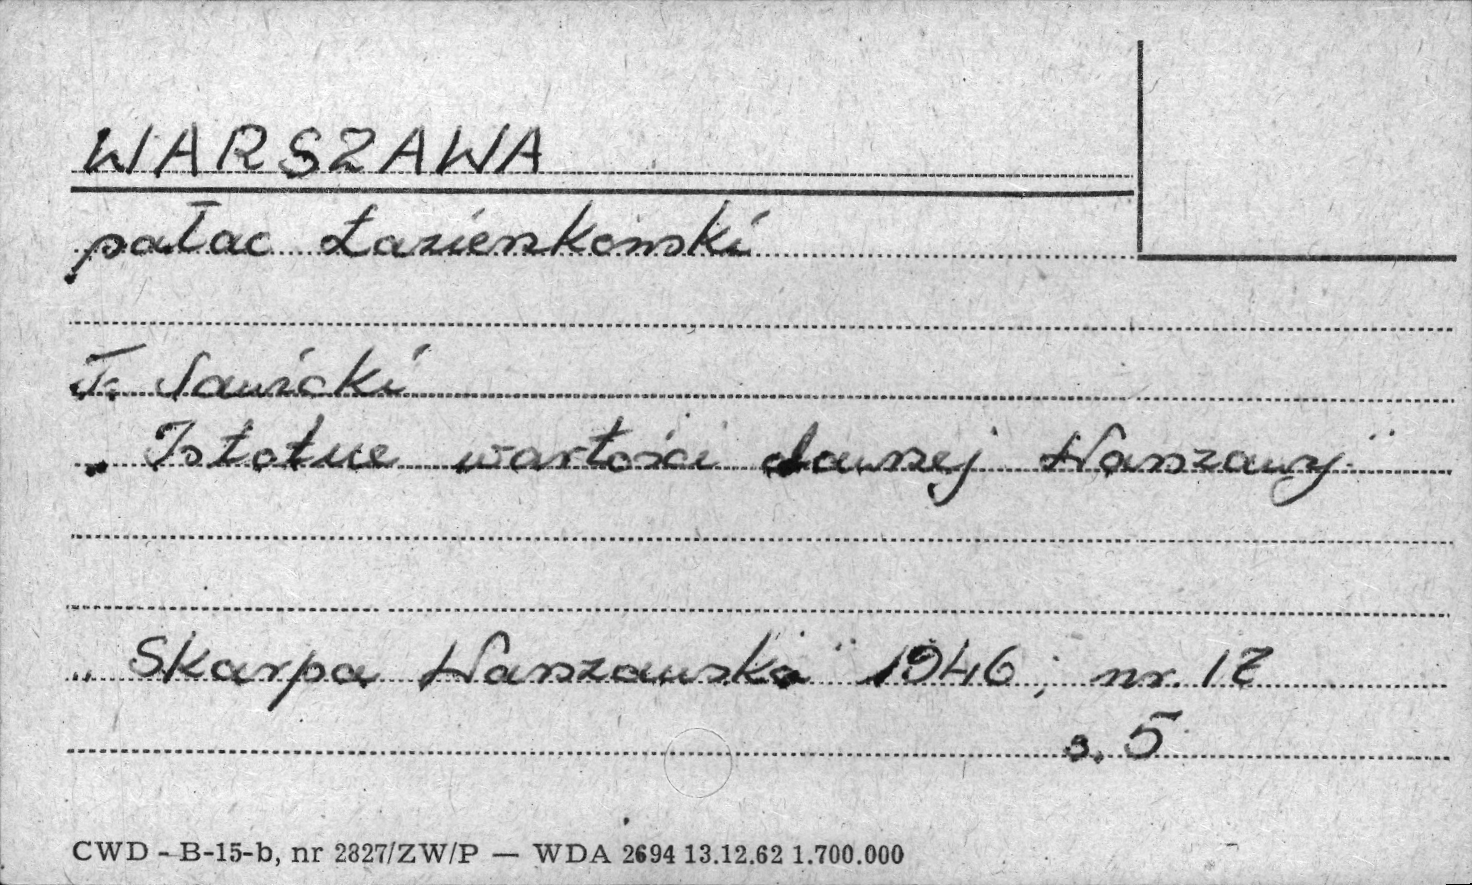 WARSZAWA
pałac Łazienkowski
T. Sawicki
„Istotne wartości dawnej Warszawy"
„Skarpa Warszawska" 1946, nr. 17
s. 5
CWD - B-15-b, nr 2827/ZW/P — WDA 2694 13.12.62 1.700.000